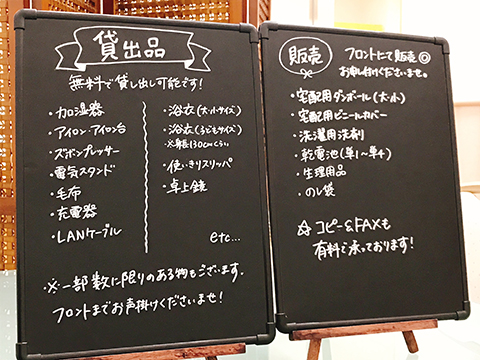 貸出品
無料で貸し出し可能です!
・加湿器
・アイロン・アイロン台
・ズボンプレッサー
・電気スタンド
・毛布
・充電器
・LANケーブル
・浴衣(大・小サイズ)
・浴衣(子どもサイズ)
※身長130cmくらい
・使いきりスリッパ
・卓上鏡
etc...
※一部数に限りのある物もございます。
フロントまでお声掛けくださいませ!
販売
フロントにて販売◎
お申し付けくださいませ。
・宅配用ダンボール(大・小)
・宅配用ビニールカバー
・洗濯用洗剤
・乾電池(単1〜単4)
・生理用品
・のし袋
☆コピー&FAXも
有料で承っております!